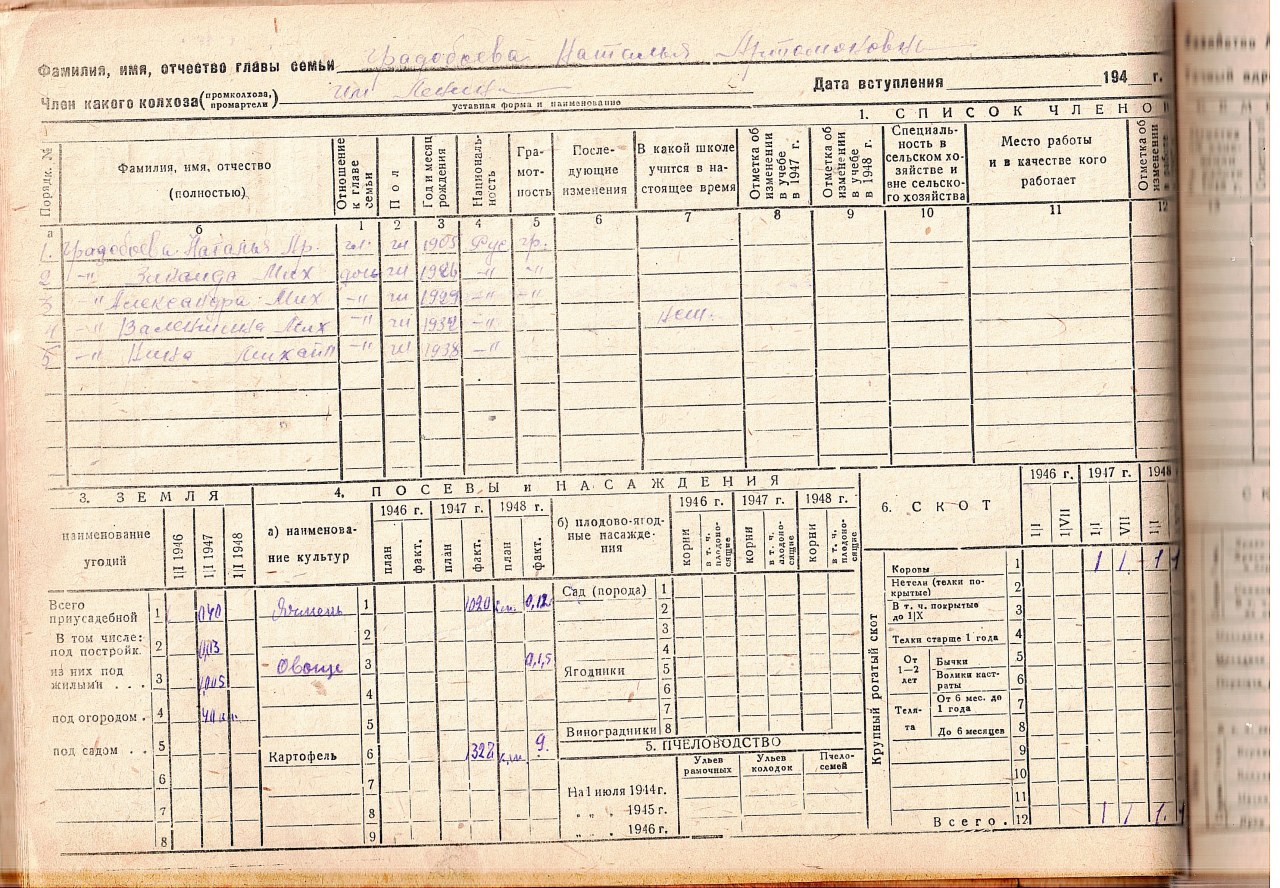 Фамилия, имя, отчество главы семьи Градобоева Наталья Артамоновн
Член какого колхоза (промколхоза, промартели) им Ленина Дата вступления 194 г.
уставная форма и наименование
1. СПИСОК ЧЛЕНОВ
Порядк. № Фамилия, имя, отчество (полностью) Отношение к главе семьи Пол Год и месяц рождения Националь-ность Гра-мот-ность После-дующие изменения В какой школе учится в на-стоящее время Отметка об изменении в учебе в 1947 г. Отметка об изменении в учебе в 1948 г. Специаль-ность в сельском хо-зяйстве и вне сельско-го хозяйства Место работы и в качестве кого работает Отметка об изменении
а б 1 2 3 4 5 6 7 8 9 10 11 12
1. Градобоева Наталья Ар. гл. ж 1905 Рус гр.
2 -"- Зинаида Мих дочь ж 1926 -"- -"-
3 -"- Александра Мих -"- ж 1929 -"- -"-
4 -"- Валентина Мих -"- ж 1932 -"-
5 -"- Нина Михайл -"- ж 1938 -"-
3. ЗЕМЛЯ
наименование угодий 1|I 1946 1|I 1947 1|I 1948
Всего приусадебной 1 0,40
В том числе: под постройк. 2 0,03
из них под жилыми . . . 3
под огородом . 4
под садом . . 5
6
7
8
4. ПОСЕВЫ и НАСАЖДЕНИЯ
а) наименова-ние культур 1946 г. 1947 г. 1948 г.
план факт. план факт. план факт.
Ячмень 1 1020 0,12
2
Овощи 3 0,1,5
4
5
Картофель 6 1328 9.
7
8
9
б) плодово-ягод-ные насажде-ния 1946 г. 1947 г. 1948 г.
корни в т. ч. плодоно-сящие корни в т. ч. плодоно-сящие корни в т. ч. плодоно-сящие
Сад (порода) 1
2
3
4
Ягодники 5
6
7
Виноградники 8
5. ПЧЕЛОВОДСТВО
Ульев рамочных Ульев колодок Пчело-семей
На 1 июля 1944 г.
" " " 1945 г.
" " " 1946 г.
6. СКОТ
1946 г. 1947 г. 1948
1|I 1|VII 1|I VII 1|I
Крупный рогатый скот
Коровы 1 1 1 - 1
Нетели (телки по-крытые) 2
В т. ч. покрытые до 1|IX 3
Телки старше 1 года 4
От 1—2 лет Бычки 5
Волики каст-раты 6
Теля-та От 6 мес. до 1 года 7
До 6 месяцев 8
9
10
11
Всего. 12 1 1 1